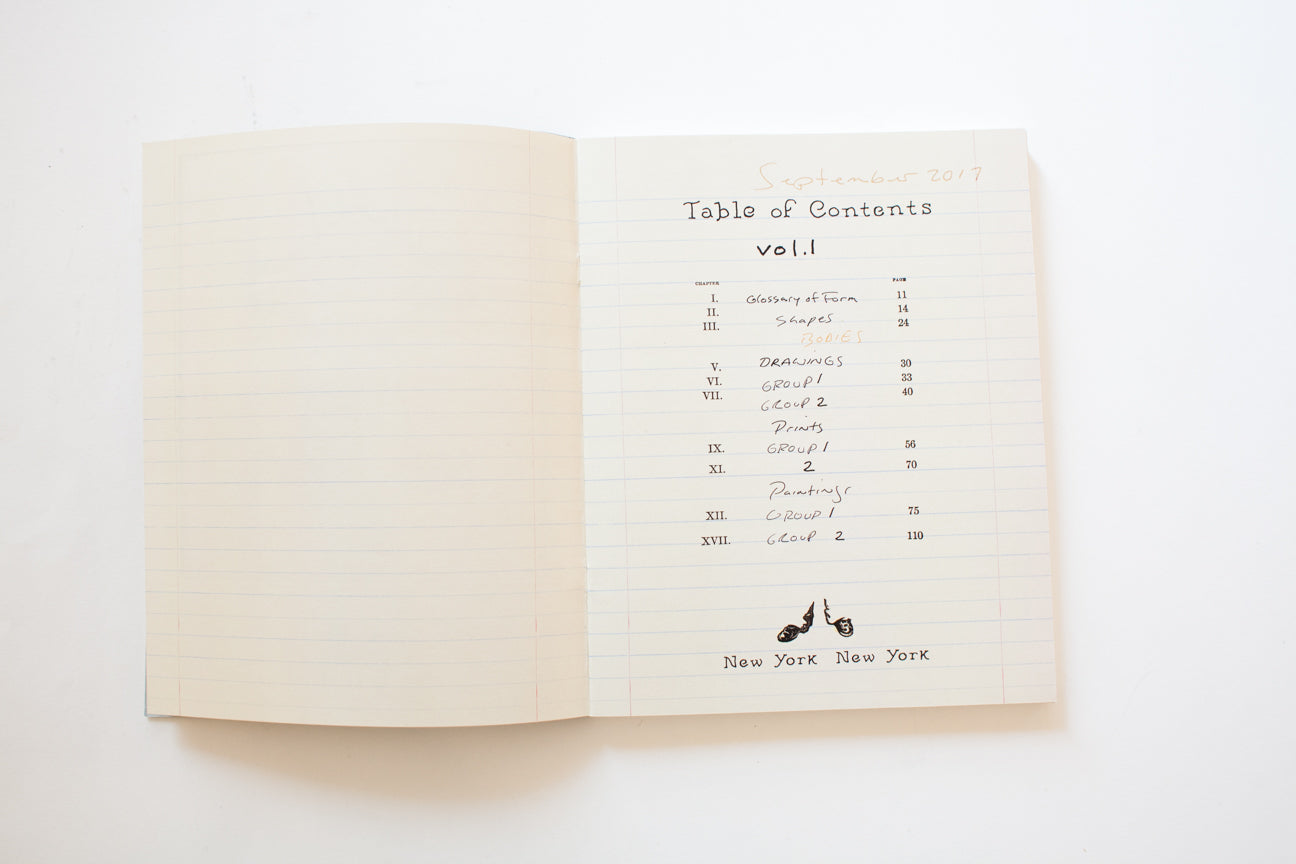 September 2017
Table of Contents
vol.1
CHAPTER PAGE
I. Glossary of Form 11
II. 14
III. Shapes 24
BODIES
V. DRAWINGS 30
VI. GROUP 1 33
VII. GROUP 2 40
Prints
IX. GROUP 1 56
XI. 2 70
Paintings
XII. GROUP 1 75
XVII. GROUP 2 110
New York New York